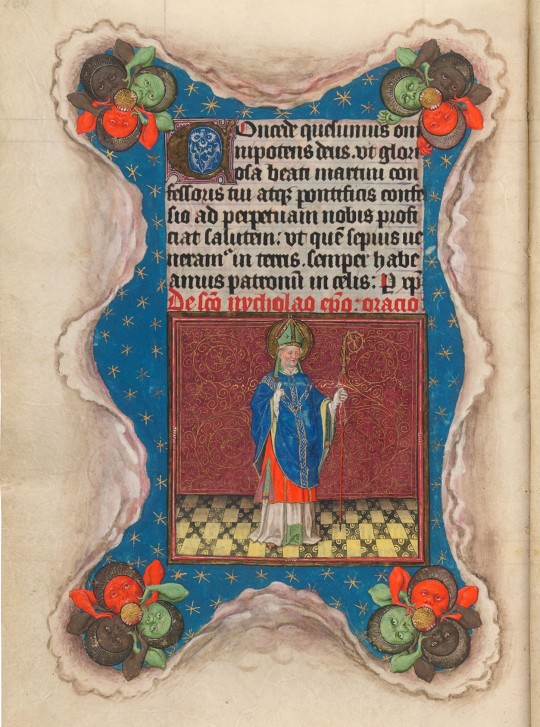 Concede quesumus om
nipotens deus. vt glori
osa beati martini con
fessoris tui atqꝫ pontificis confes
sio ad perpetuam nobis profi
ciat salutem: vt quē sepius ue
neramꝰ in terris. semper habe
amus patronū in celis: P xp̄
De scō nycholao ep̄o: oracio